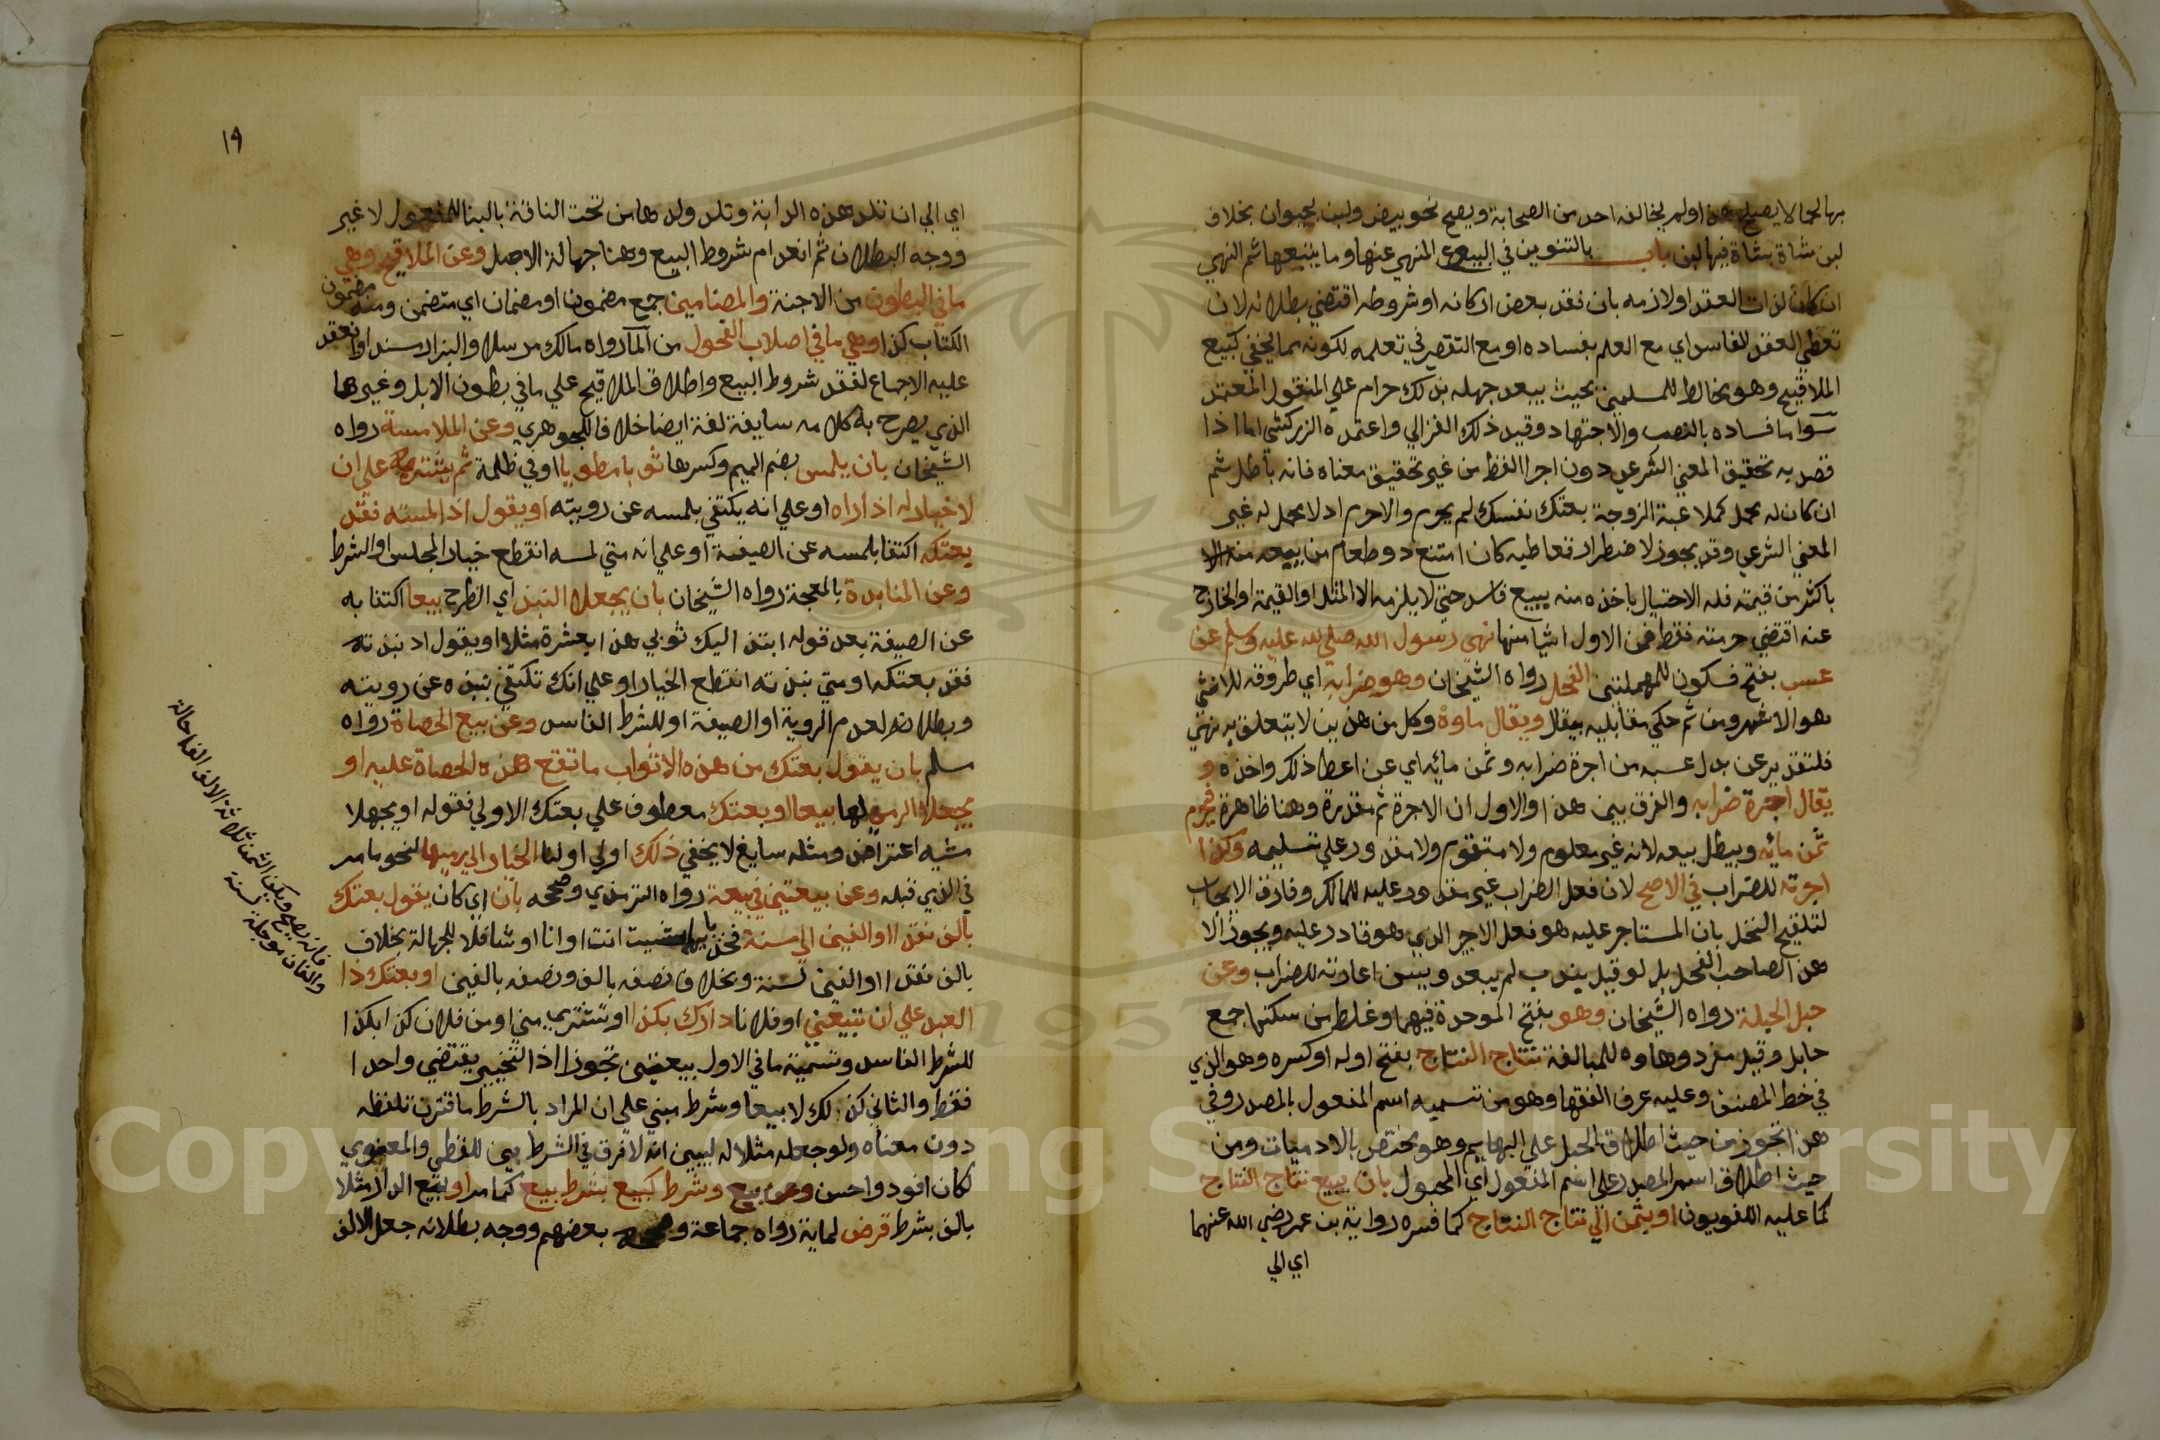 بها لحما لا يصلح لهذا ولم يخالفه احد من الصحابة ويصح نحو بيض ولبن لحيوان بخلاف
لبن شاة بشاة فيها لبن باب بالتنوين في البيوع المنهي عنها وما يتبعها ثم النهي
ان كان لذات العقد او لازمه بان فقد بعض اركانه او شروطه اقتضي بطلانه لان
تعطي العقد الفاسد اي مع العلم بفساده او مع التقصير في تعلمه لكونه مما يخفي كبيع
الملاقيح وهو مخالط للمسلمين بحيث يبعد جهله بذلك حرام علي المنقول المعتمد
سوا ما فساده بالنص والاجتهاد وقيد ذلك الغزالي واعتمده الزركشي اما اذا
قصد به تحقيق المعني الشرعي دون اجرا اللفظ من غير تحقيق معناه فانه باطل ثم
ان كان له محمل كملاعبة الزوجة بعتك نفسك لم يحرم والا حرم اذ لا محمل له غير
المعني الشرعي وقد يجوز لاضطرار تعاطيه كان امتنع ذو طعام من بيعه منه الا
باكثر من قيمته فله الاحتيال باخذه منه ببيع فاسد حتي لا يلزمه الا المثل او القيمة او الخارج
عنه اقتضي حرمته فقط فمن الاول اشيا منها نهي رسول الله صلي الله عليه وسلم عن
عسب بفتح فسكون للمهملتين الفحل رواه الشيخان وهو ضرابه اي طروقه للانثي
هو الاشهر ومن ثم حكي مقابليه بيقال ويقال ماوه وكل من هذين لا يتعلق به نهي
فالتقدير عن بدل عسبه من اجرة ضرابه وثمن مائه اي عن اعطا ذلك واخذه و
يقال اجرة ضرابه والفرق بين هذا والاول ان الاجرة ثم مقدرة وهنا ظاهرة فيحرم
ثمن مائه ويبطل بيعه لانه غير معلوم ولا متقوم ولا مقدور علي تسليمه وكذا
اجرته للضراب في الاصح لان فعل الضراب غير مقدور عليه للمالك وفارق الايجاب
لتلقيح النخل بان المستاجر عليه هو فعل الاجير الذي هو قادر عليه ويجوز الا
هدا لصاحب الفحل بل لو قيل يندب لم يبعد ويسن اعارته للضراب وعن
حبل الحبلة رواه الشيخان وهو بفتح الموحدة فيهما وغلط من سكنها جمع
حابل وقيل مفرد وهاوه للمبالغة نتاج النتاج بفتح اوله او كسره وهو الذي
في خط المصنف وعليه عرف الفقها وهو من تسميه اسم المفعول بالمصدر وفي
هذا تجوز من حيث اطلاق الحبل علي البهايم وهو مختص بالادميات ومن
حيث اطلاق اسم المصدر علي اسم المفعول اي المحبول بان يبيع نتاج النتاج
كما عليه اللغويون او بثمن الي نتاج النتاج كما فسره رواية بن عمر رضي الله عنهما
اي الي
١٩
اي الي ان تلد هذه الدابة وتلد ولدها من تحت الناقة بالبنا للمفعول لا غير
ووجه البطلان ثم انعدام شروط البيع وهنا جهالة الاجل وعن الملاقيح وهي
ما في البطون من الاجنة والمضامين جمع مضمون او مضمان اي متضمن ومنه مضمون
الكتاب كذا وهي ما في اصلاب الفحول من الما رواه مالك مرسلا والبزار مسندا وانعقد
عليه الاجماع لفقد شروط البيع واطلاق الملاقيح علي ما في بطون الابل وغيرها
الذي يصرح به كلامه سايغ لغة ايضا خلافا للجوهري وعن الملامسة رواه
الشيخان بان يلمس بضم الميم وكسرها ثوبا مطويا او في ظلمة ثم يشتريه علي ان
لا خيار له اذا راه او علي انه يكتفي بلمسه عن رويته او يقول اذا لمسته فقد
بعتكه اكتفا بلمسه عن الصيغة او علي انه متي لمسه انقطع خيار المجلس او الشرط
وعن المنابذة بالمعجمة رواه الشيخان بان يجعلا النبذ اي الطرح بيعا اكتفا به
عن الصيغة بعد قوله انبذ اليك ثوبي هذا بعشرة مثلا او يقول اذ نبذته
فقد بعتكه او متي نبذته انقطع الخيار او علي انك تكتفي بنبذه عن رويته
وبطلانه لعدم الروية او الصيغة او للشرط الفاسد وعن بيع الحصاة رواه
مسلم بان يقول بعتك من هذه الاثواب ما تقع هذه الحصاة عليه او
يجعلا الرمي لها بيعا او بعتك معطوف علي بعتك الاولي فقوله او يجعلا
شبه اعتراض ومثله سايغ لا يخفي ذلك اولي اولنا الخيار الي رميها لنحو ما مر
في الذي قبله وعن بيعتين في بيعة رواه الترمذي وصححه بان اي كان يقول بعتك
بالف نقدا او الفين الي سنة فخذ بايهما شيت انت او انا او شا فلا للجهالة بخلاف
بالف نقدا او الفين لسنة وبخلاف نصفه بالف ونصفه بالفين او بعتك ذا
العبد علي ان تبيعني او فلانا دارك بكذا او تشتري مني او من فلان كذا بكذا
للشرط الفاسد وتسمية ما في الاول بيعتين تجوز اذ التخيير يقتضي واحدا
فقط والثاني كذلك لا بيعا وشرط مبني علي ان المراد بالشرط ما قترن تلفظه
دون معناه ولو جعله مثلا له ليبين انه لا فرق في الشرط بين اللفظي والمعنوي
لكان افود واحسن وعن بيع وشرط كبيع بشرط بيع كما مر او بيع الدار مثلا
بالف بشرط قرض لماية رواه جماعة و بعضهم ووجه بطلانه جعل الالف
فانه يصح ويكون الثمن ثلاثة الاف الف حالة
والفان موجلة لسنة